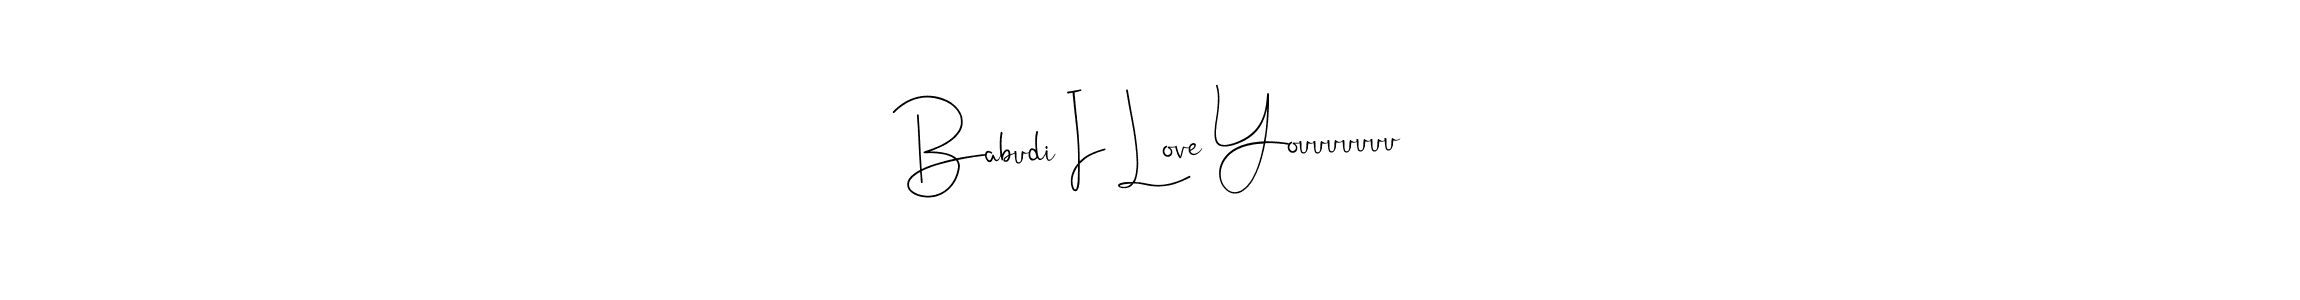 Babudi I Love Youuuuuuu